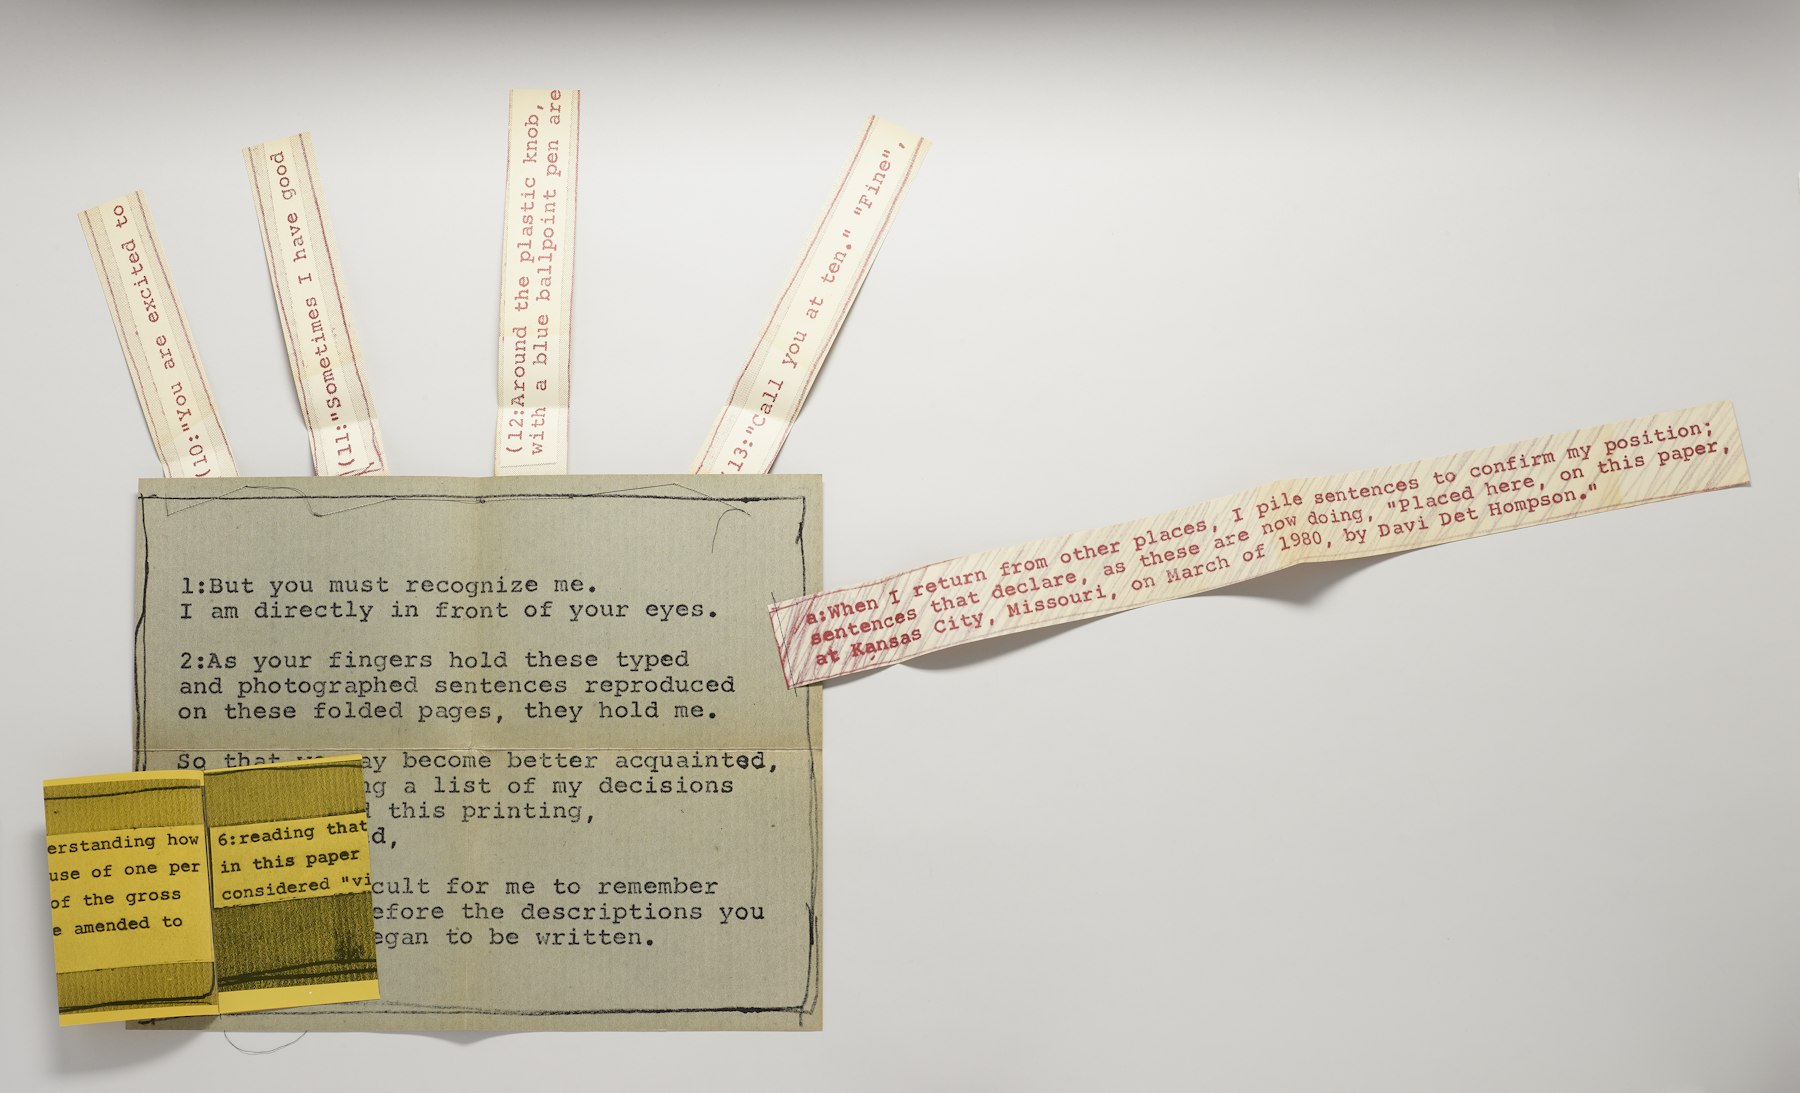 (10:"You are excited to
(11:"Sometimes I have good
(12:Around the plastic knob,
with a blue ballpoint pen are
(13:"Call you at ten." "Fine",
a:When I return from other places, I pile sentences to confirm my position;
sentences that declare, as these are now doing, "Placed here, on this paper,
at Kansas City, Missouri, on March of 1980, by Davi Det Hompson."
1:But you must recognize me.
I am directly in front of your eyes.
2:As your fingers hold these typed
and photographed sentences reproduced
on these folded pages, they hold me.
So that may become better acquainted,
ng a list of my decisions
d this printing,
d,
cult for me to remember
efore the descriptions you
egan to be written.
erstanding how
use of one per
of the gross
e amended to
6:reading that
in this paper
considered "vi